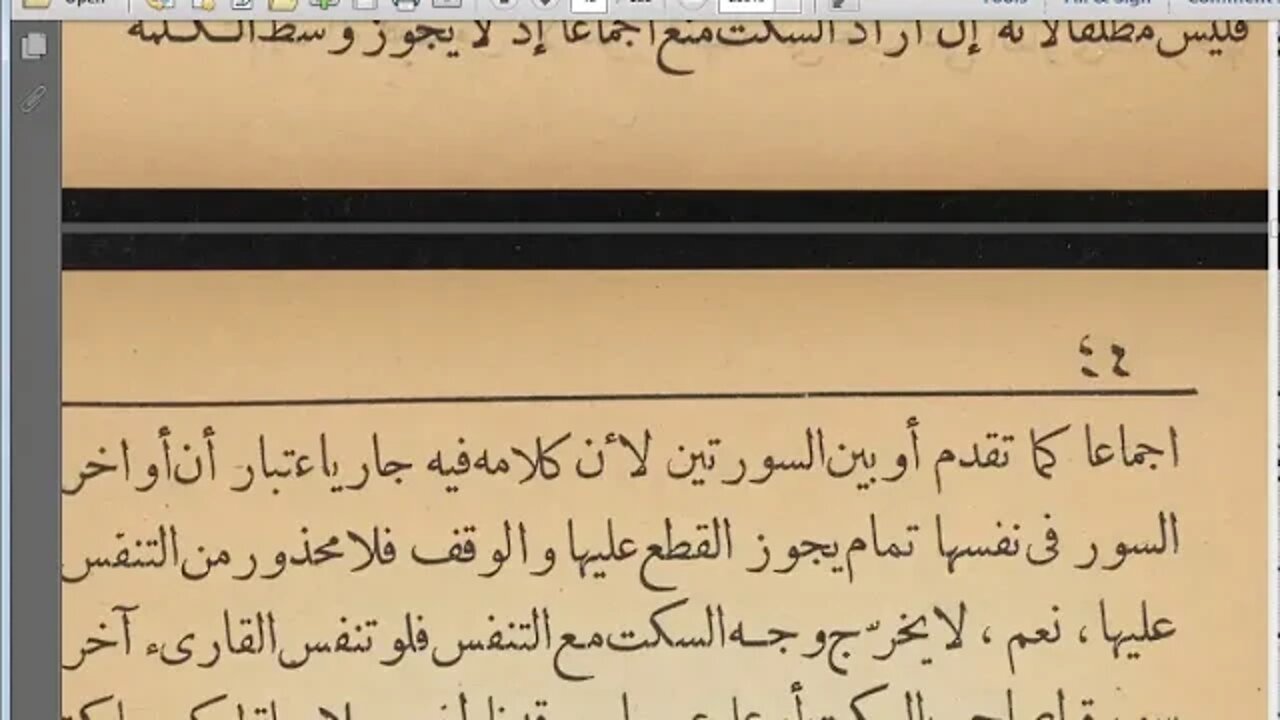 Open Tools Fill & Sign Comment
فليس مطلقا لانه إن أراد السكت منع اجماعا إذ لا يجوز وسط الكلمة
٤٤
اجماعا كما تقدم أو بين السورتين لأن كلامه فيه جار باعتبار أن أواخر
السور فى نفسها تمام يجوز القطع عليها والوقف فلا محذور من التنفس
عليها ، نعم ، لا يخرّج وجه السكت مع التنفس فلو تنفس القارىء آخر